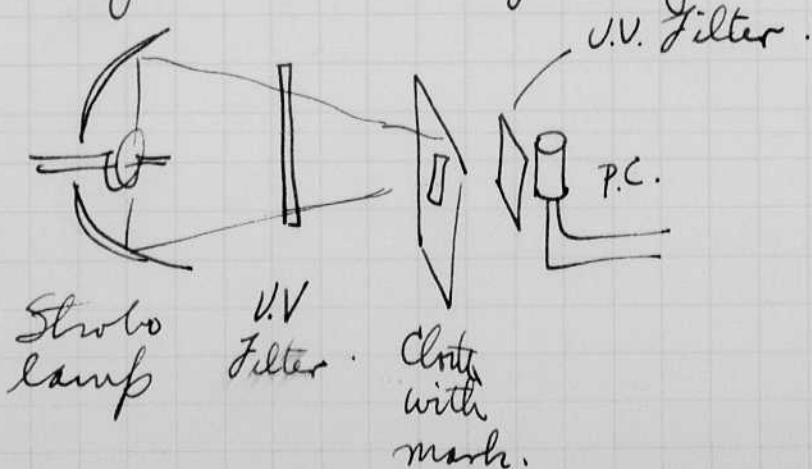 U.V. Filter.
P.C.
Strobo
lamp
U.V
Filter.
Cloth
with
mark.